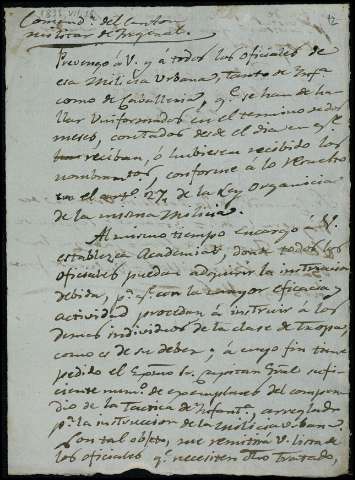 1835-VII-16
12
Comand.ª del Canton
militar de Fregenal.
Prevengo á V. y á todos los oficiales de
esa Milicia Urbana, tanto de Ynfª
como de Caballeria, q.e se han de ha-
llar Uniformados en el termino de dos
meses, contados desde el dia en q.e
reciban, ó hubiesen recibido los
nombram.tos, conforme á lo resuelto
en el art.o 27, de la Ley organica
de la misma Milicia.
Al mismo tiempo encargo á V.
establezca Academias, donde todos los
oficiales puedan adquirir la instruccion
debida, p.a q.e con la mayor eficacia y
actividad procedan á instruir á los
demas individuos de la clase de tropa,
como es de su deber, y á cuyo fin tiene
pedido el Exmo. Sr. Capitan Gral sufi-
ciente num.o de exemplares del compen-
dio de la Tactica de Ynfant.a, arreglado
p.a la instruccion de la Milicia urbana.
Con tal objeto, me remitirá V. lista de
los oficiales q.e necesiten dho tratado,